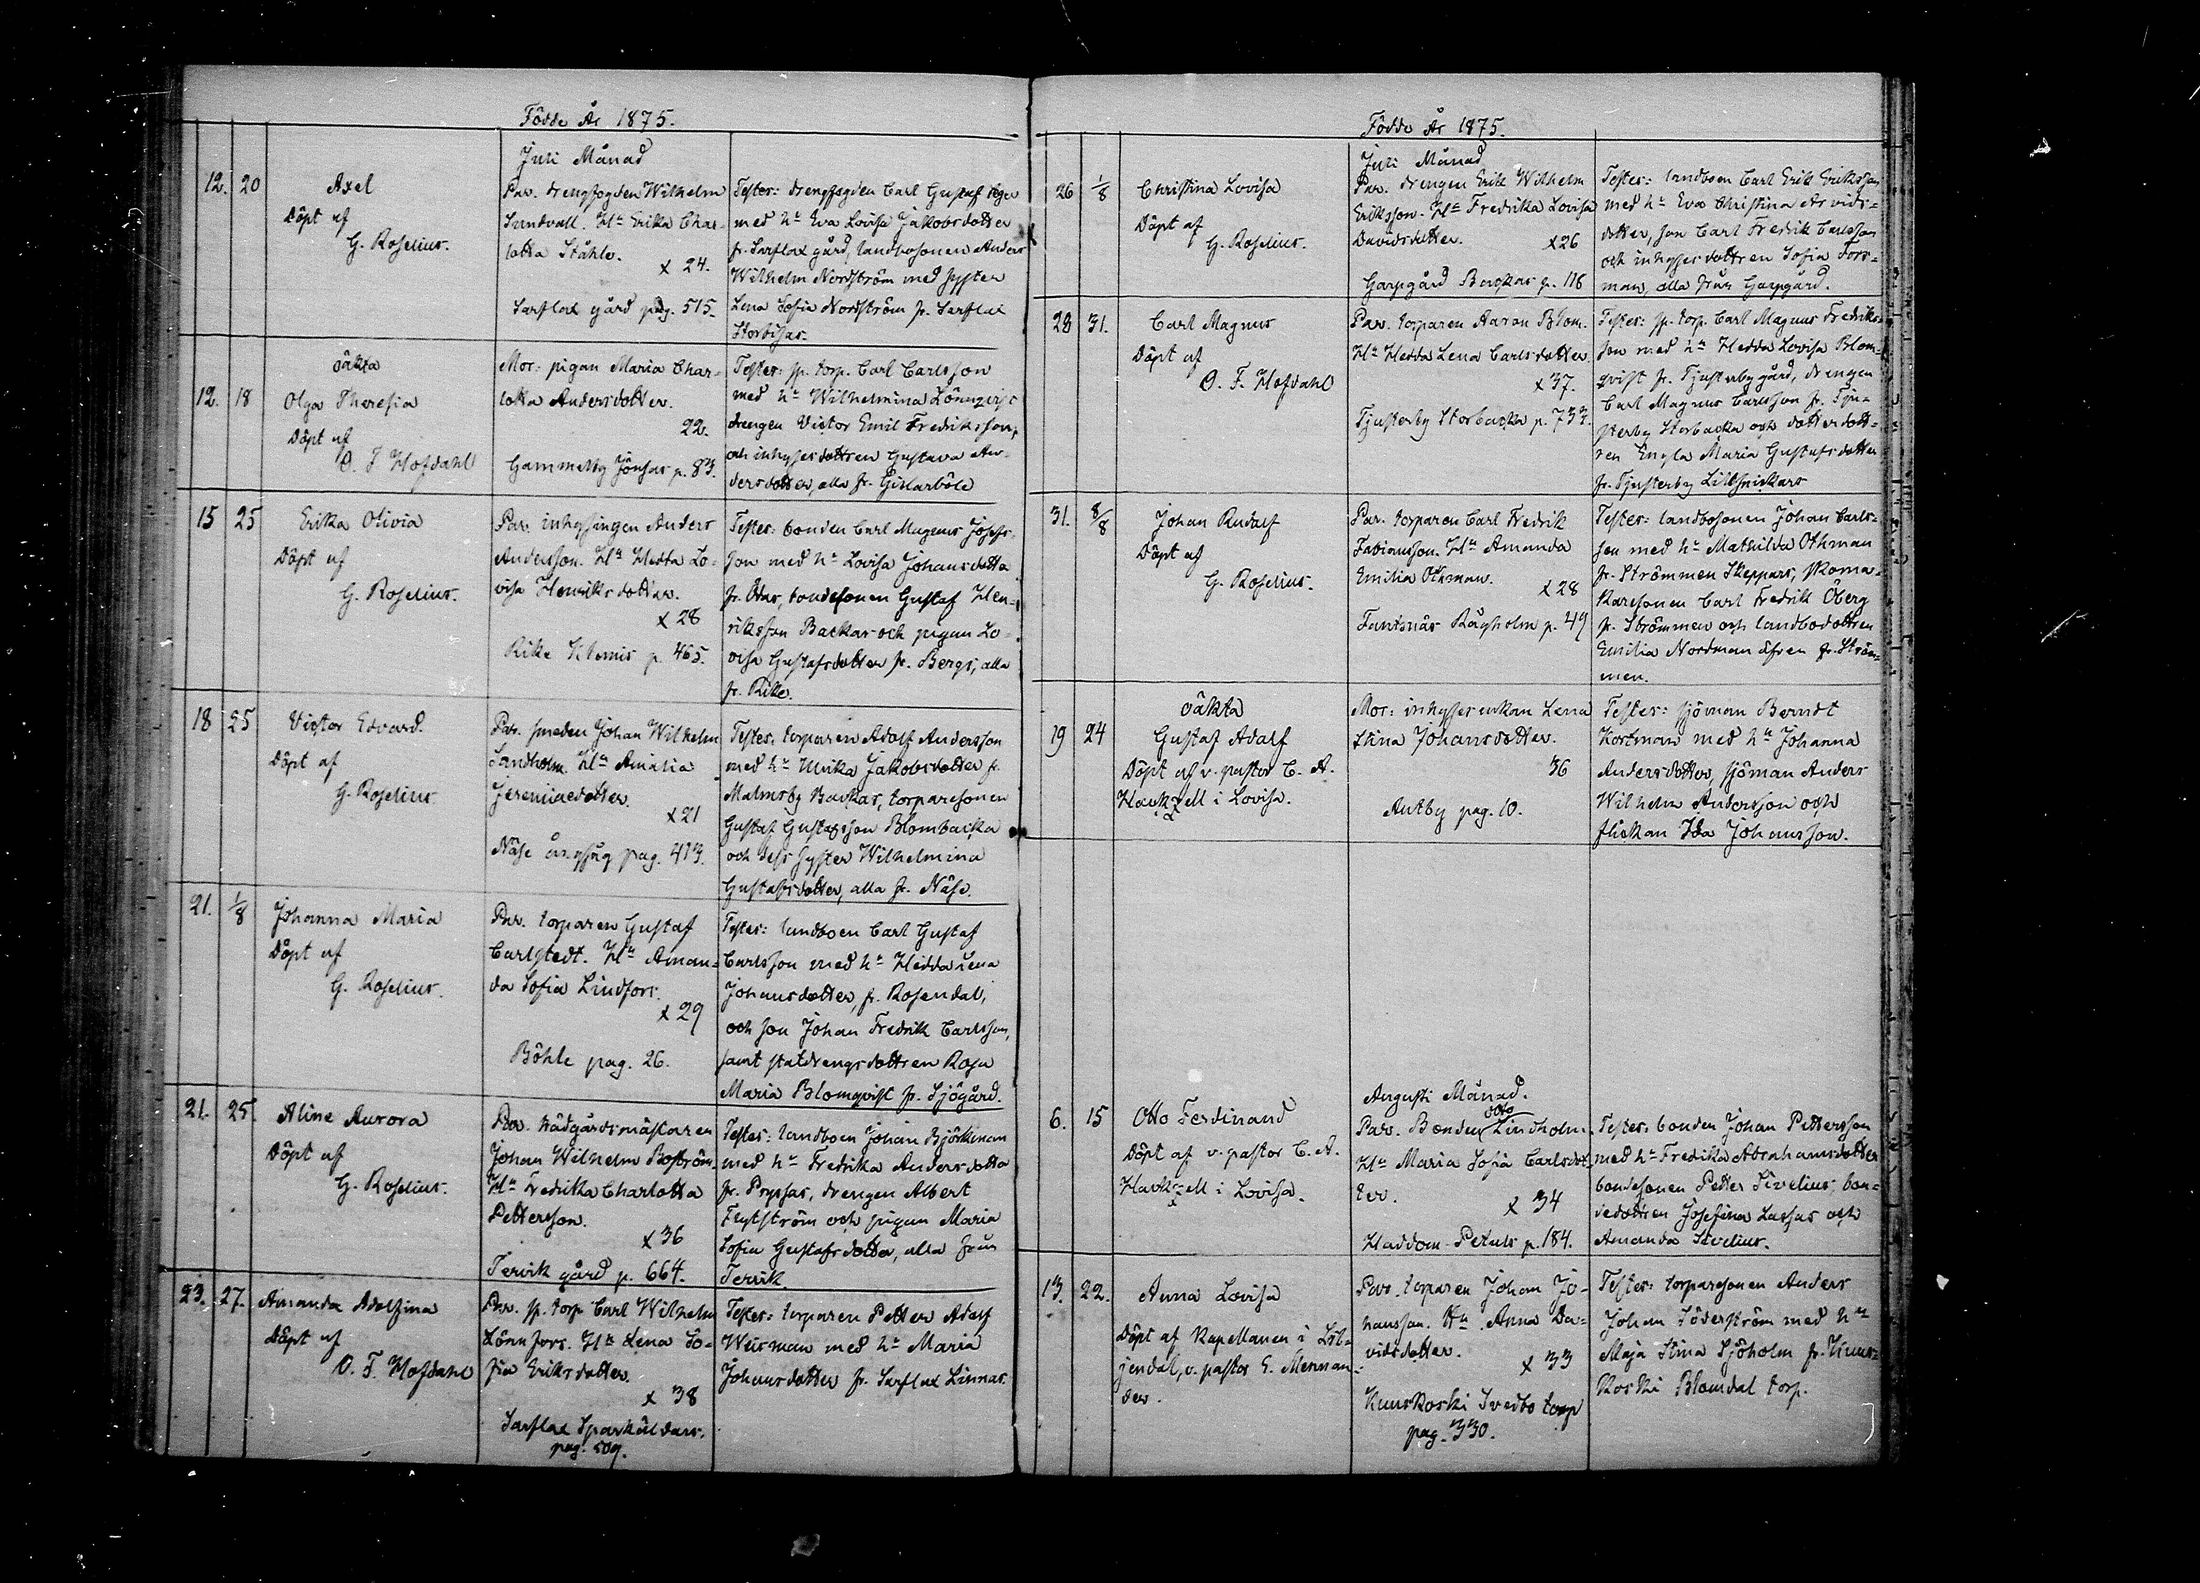 Födde År 1875.
Juli Månad
12. 20 Axel
Döpt af
G. Roselius.
Par. drengfogden Wilhelm
Sundvall. Hu Erika Char-
lotta Ståhle.
x 24.
Sarflax gård pag. 515.
Tester: drengfogden Carl Gustaf
med hu Eva Lovisa Jakobsdotter
fr. Sarflax gård, landbosonen Anders
Wilhelm Nordström med syster
Lena Sofia Nordström fr. Sarflax
Storbisas.
oäkta
12. 18 Olga Theresia
Döpt af
O. F Hofdahl
Mor: pigan Maria Char-
lotta Andersdotter.
22.
Gammelby Jönsas p. 83.
Tester: sp. torp. Carl Carlsson
med hu Wilhelmina Lönnqvist
drengen Victor Emil Fredriksson,
och inhysesdottren Gustava An-
dersdotter, alla fr. Gislarböle
15 25 Erika Olivia
Döpt af
G. Roselius.
Par. inhysingen Anders
Andersson. Hu Hedda Lo-
visa Henriksdotter.
x 28
Rike Klemis p. 465.
Tester: bonden Carl Magnus Josefs-
son med hu Lovisa Johansdotter
fr. Ottas, bondesonen Gustaf Hen-
riksson Backas och pigan Lo-
visa Gustafsdotter fr. Bergs, alla
fr. Rike.
18 25 Victor Edvard.
Döpt af
G. Roselius
Par. smeden Johan Wilhelm
Sandholm. Hu Amalia
Jeremiaedotter.
x 21
Näse ångsåg pag. 413.
Tester: torparen Adolf Andersson
med hu Ulrika Jakobsdotter fr.
Malmsby Backas, torparesonen
Gustaf Gustafsson Blombacka
och dess syster Wilhelmina
Gustafsdotter, alla fr. Näse.
21. 1/8 Johanna Maria
Döpt af
G. Roselius.
Par. torparen Gustaf
Carlstedt. Hu Aman-
da Sofia Lindfors.
x 29
Böhle pag. 26.
Tester: landboen Carl Gustaf
Carlsson med hu Hedda Lena
Johansdotter, fr. Rosendal,
och son Johan Fredrik Carlsson,
samt staldrengsdottren Rosa
Maria Blomqvist fr. Sjögård.
21. 25 Aline Aurora
Döpt af
G. Roselius.
Par. trädgårdsmästaren
Johan Wilhelm Boström.
Hu Fredrika Charlotta
Pettersson.
x 36
Tervik gård p. 664.
Tester: landboen Johan Björkman
med hu Fredrika Andersdotter
fr. Pryssas, drengen Albert
Flytström och pigan Maria
Sofia Gustafsdotter, alla från
Tervik.
23. 27. Amanda Adolfina
Döpt af
O. F. Hofdahl
Par. sp. torp. Carl Wilhelm
Lönnfors. Hu Lena So-
fia Eriksdotter.
x 38
Sarflax Sparkuldars.
pag. 509.
Tester: torparen Petter Adolf
Weirman med hu Maria
Johansdotter fr. Sarflax Linnas.
Födde År 1875.
Juli Månad
26 1/8 Christina Lovisa
Döpt af
G. Roselius.
Par. drengen Erik Wilhelm
Eriksson. Hu Fredrika Lovisa
Davidsdotter.
x 26
Garpgård Backas p. 116
Tester: landboen Carl Erik Eriksson
med hu Eva Christina Arvids-
dotter, son Carl Fredrik Carlsson
och inhysesdottren Sofia Fors-
man, alla från Garpgård.
28 31. Carl Magnus
Döpt af
O. F. Hofdahl
Par. torparen Aaron Blom.
Hu Hedda Lena Carlsdotter.
x 37.
Tjusterby Storbacka p. 733.
Tester: sp. torp. Carl Magnus Fredriks-
son med hu Hedda Lovisa Blom-
qvist fr. Tjusterby gård, drengen
Carl Magnus Carlsson fr. Tju-
sterby Storbacka och dotterdott-
ren Engla Maria Gustafsdotter
fr. Tjusterby Lillsnickars
31. 8/8 Johan Rudolf
Döpt af
G. Roselius.
Par. torparen Carl Fredrik
Fabiansson. Hu Amanda
Emilia Othman.
x 28
Fantsnäs Rågholm p. 49
Tester: landbosonen Johan Carls-
son med hu Mathilda Othman
fr. Strömmen Skeppars, skoma-
karesonen Carl Fredrik Öberg
fr. Strömmen och landbodottren
Emilia Nordman äfven fr. Ström-
men.
oäkta
19 24 Gustaf Adolf
Döpt af v. pastor C. A.
Hackzell i Lovisa.
Mor: inhysesenkan Lena
Stina Johansdotter.
36
Antby pag. 10.
Tester: sjöman Berndt
Kortman med hu Johanna
Andersdotter, sjöman Anders
Wilhelm Andersson och
flickan Ida Johansson.
Augusti Månad.
6. 15 Otto Ferdinand
Döpt af v. pastor C. A.
Hackzell i Lovisa.
Par. Bonden Otto Lindholm.
Hu Maria Sofia Carlsdot-
ter.
x 34
Haddom Petuls p. 184.
Tester: bonden Johan Pettersson
med hu Fredrika Abrahamsdotter
bondesonen Petter Sivelius, bon-
dedöttren Josefina Lassas och
Amanda Sivelius.
13. 22. Anna Lovisa
Döpt af Kapellanen i Lil-
jendal, v. pastor G. Menan-
der.
Par. torparen Johan Jo-
hansson. Hu Anna Da-
vidsdotter.
x 33
Kuuskoski Svedbo torp
pag. 330.
Tester: torparesonen Anders
Johan Söderström med hu
Maja Stina Sjöholm fr. Kuus-
koski Blomdal torp.